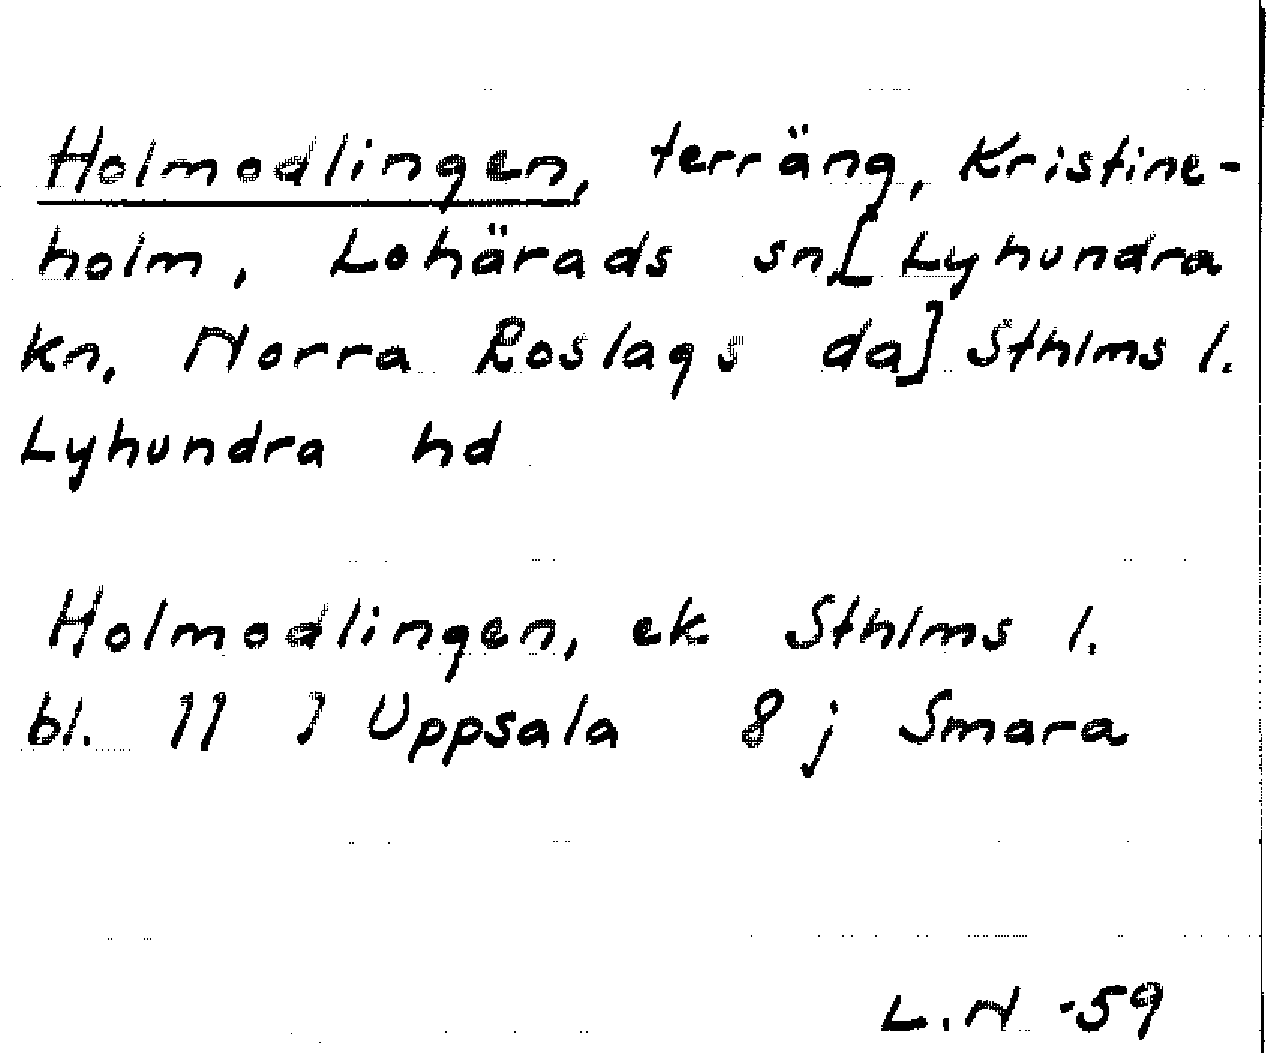 Holmodlingen, terräng, Kristine-
holm, Lohärads sn [Lyhundra
kn, Norra Roslags da] Sthlms l.
Lyhundra hd
Holmodlingen, ek Sthlms l.
bl. 11 I Uppsala 8 j Smara
L.N -59